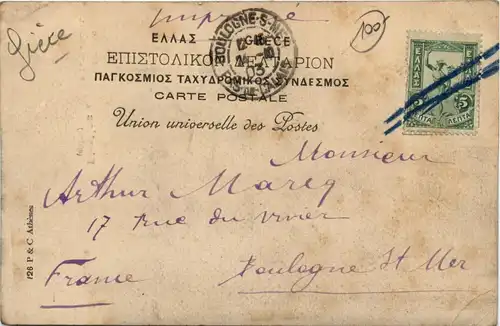 imprimé
Grèce
100-
ΕΛΛΑΣ GRÈCE
ΕΠΙΣΤΟΛΙΚΟΝ ΔΕΛΤΑΡΙΟΝ
ΠΑΓΚΟΣΜΙΟΣ ΤΑΧΥΔΡΟΜΙΚΟΣ ΣΥΝΔΕΣΜΟΣ
CARTE POSTALE
Union universelle des Postes
BOULOGNE-S-MER
PAS-DE-CALAIS
03
ΕΛΛΑΣ
5 5
ΛΕΠΤΑ ΛΕΠΤΑ
Monsieur
Arthur Marcq
17 Rue du vivier
Boulogne St Mer
France
126 P & C Athènes